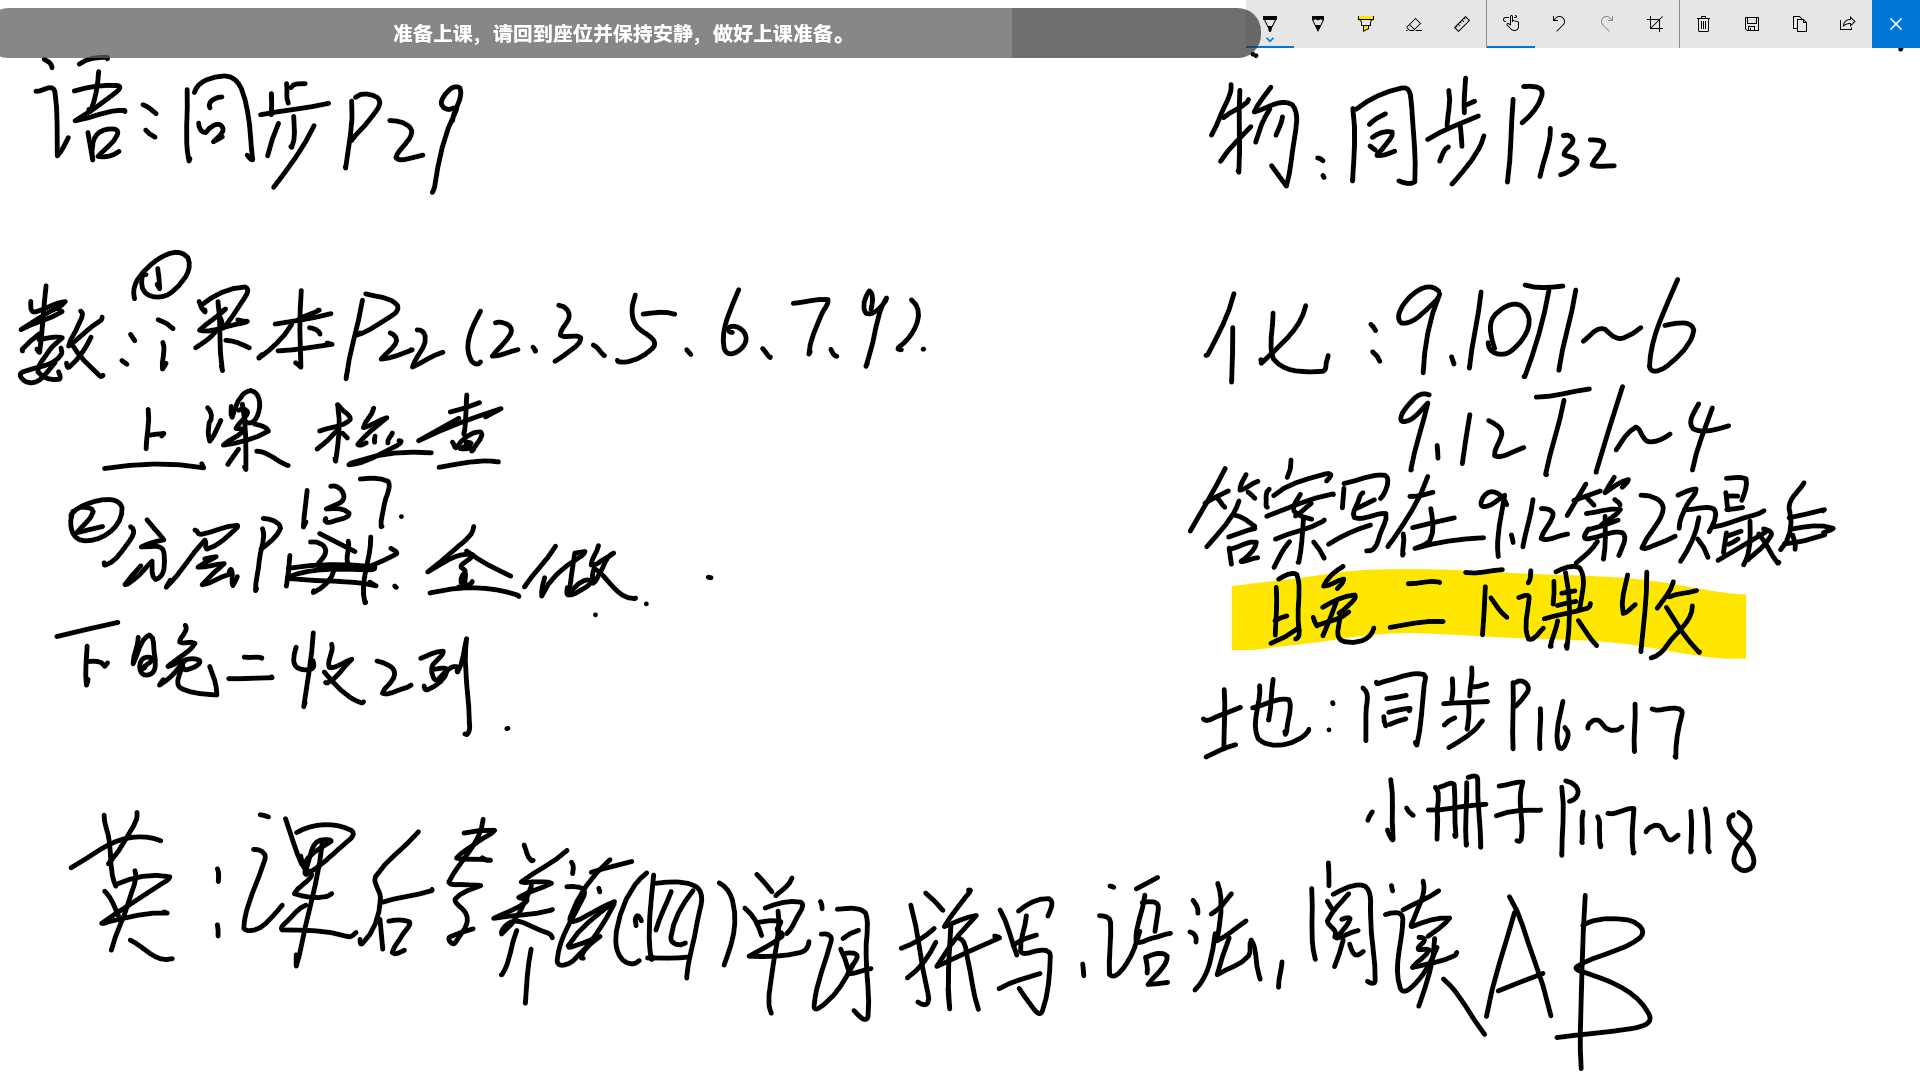 准备上课，请回到座位并保持安静，做好上课准备。
语：同步P29
数：①课本P22(2、3、5、6、7、9).
上课检查
②分层P137.全做.
下晚二收2列.
英：课后素养(四)单词拼写、语法，阅读AB
物：同步P132
化：9.10T1~6
9.12T1~4
答案写在9.12第2项最后
晚二下课收
地：同步P16~17
小册子P117~118